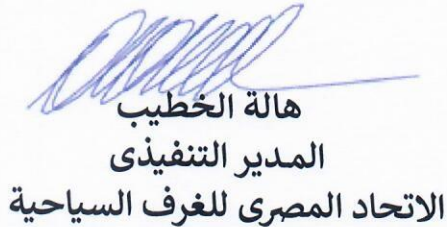 هالة الخطيب
المدير التنفيذى
الاتحاد المصرى للغرف السياحية